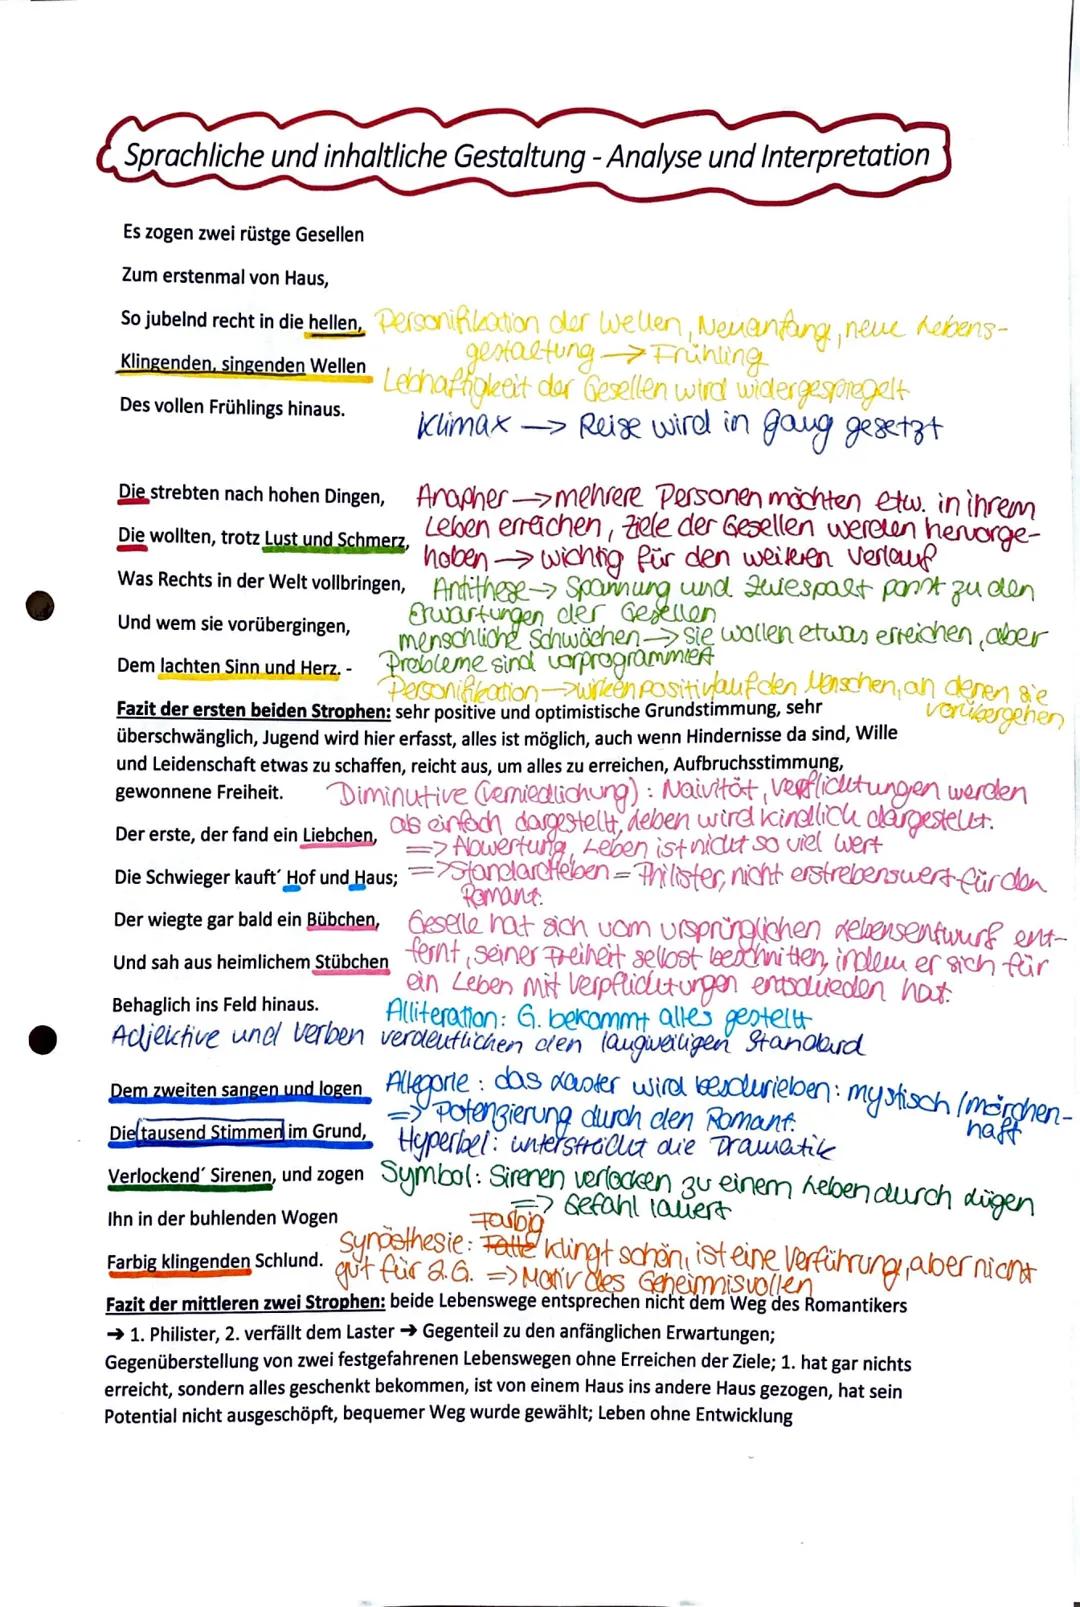 Sprachliche und inhaltliche Gestaltung - Analyse und Interpretation
Es zogen zwei rüstge Gesellen
Zum erstenmal von Haus,
So jubelnd recht in die hellen, Personifikation der Wellen, Neuanfang, neue Lebens-
gestaltung → Frühling
Klingenden, singenden Wellen
Lebhaftigkeit der Gesellen wird widergespiegelt
Des vollen Frühlings hinaus.
Klimax → Reise wird in gang gesetzt
Die strebten nach hohen Dingen, Anapher → mehrere Personen möchten etw. in ihrem
Leben erreichen, Ziele der Gesellen werden hervorge-
Die wollten, trotz Lust und Schmerz,
hoben → wichtig für den weiteren Verlauf
Was Rechts in der Welt vollbringen, Antithese → Spannung und Zwiespalt passt zu den
Erwartungen der Gesellen
Und wem sie vorübergingen,
menschliche Schwächen → sie wollen etwas erreichen, aber
Dem lachten Sinn und Herz. - Probleme sind vorprogrammiert
Personifikation → wirken positiv auf den Menschen, an denen sie
vorübergehen
Fazit der ersten beiden Strophen: sehr positive und optimistische Grundstimmung, sehr
überschwänglich, Jugend wird hier erfasst, alles ist möglich, auch wenn Hindernisse da sind, Wille
und Leidenschaft etwas zu schaffen, reicht aus, um alles zu erreichen, Aufbruchsstimmung,
gewonnene Freiheit. Diminutive (Verniedlichung): Naivität, Verpflichtungen werden
als einfach dargestellt, Leben wird kindlich dargestellt.
Der erste, der fand ein Liebchen,
=> Abwertung, Leben ist nicht so viel wert
Die Schwieger kauft´ Hof und Haus; => Standardleben = Philister, nicht erstrebenswert für den
Romant.
Der wiegte gar bald ein Bübchen, Geselle hat sich vom ursprünglichen Lebensentwurf ent-
Und sah aus heimlichem Stübchen fernt, seiner Freiheit selbst beschnitten, indem er sich für
ein Leben mit Verpflichtungen entschieden hat.
Behaglich ins Feld hinaus. Alliteration: G. bekommt alles gestellt
Adjektive und Verben verdeutlichen den langweiligen Standard
Dem zweiten sangen und logen Allegorie: das Laster wird beschrieben: mystisch/märchen-
haft
=> Potenzierung durch den Romant.
Die tausend Stimmen im Grund, Hyperbel: unterstreicht die Dramatik
Verlockend´ Sirenen, und zogen Symbol: Sirenen verlocken zu einem Leben durch Lügen
=> Gefahl lauert
Ihn in der buhlenden Wogen
Farbig
Farbig klingenden Schlund. Synästhesie: klingt schön, ist eine Verführung, aber nicht
gut für 2.G. => Motiv des Geheimnisvollen
Fazit der mittleren zwei Strophen: beide Lebenswege entsprechen nicht dem Weg des Romantikers
→ 1. Philister, 2. verfällt dem Laster → Gegenteil zu den anfänglichen Erwartungen;
Gegenüberstellung von zwei festgefahrenen Lebenswegen ohne Erreichen der Ziele; 1. hat gar nichts
erreicht, sondern alles geschenkt bekommen, ist von einem Haus ins andere Haus gezogen, hat sein
Potential nicht ausgeschöpft, bequemer Weg wurde gewählt; Leben ohne Entwicklung